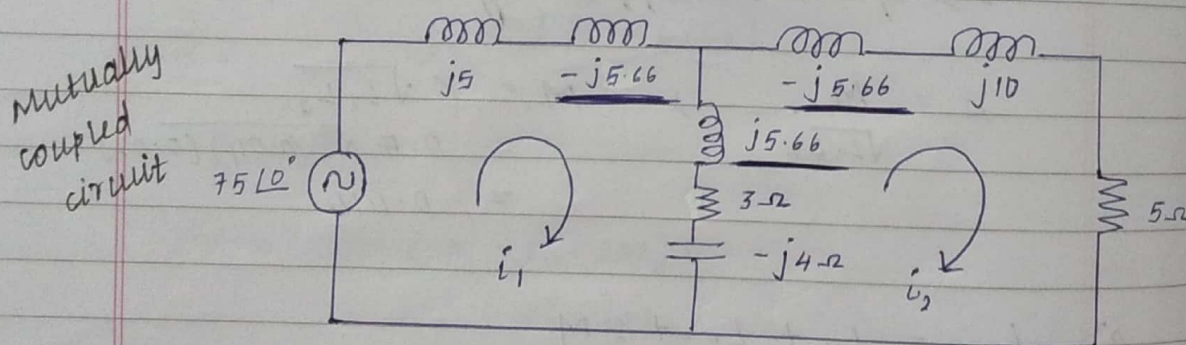 Mutually
coupled
circuit
j5
-j5.66
-j5.66
j10
j5.66
75∠0°
3Ω
5Ω
-j4Ω
i₁
i₂